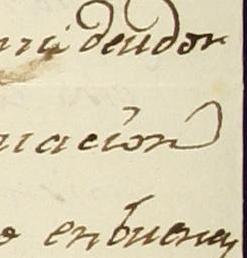 mi deudor
uacion
o enbuena